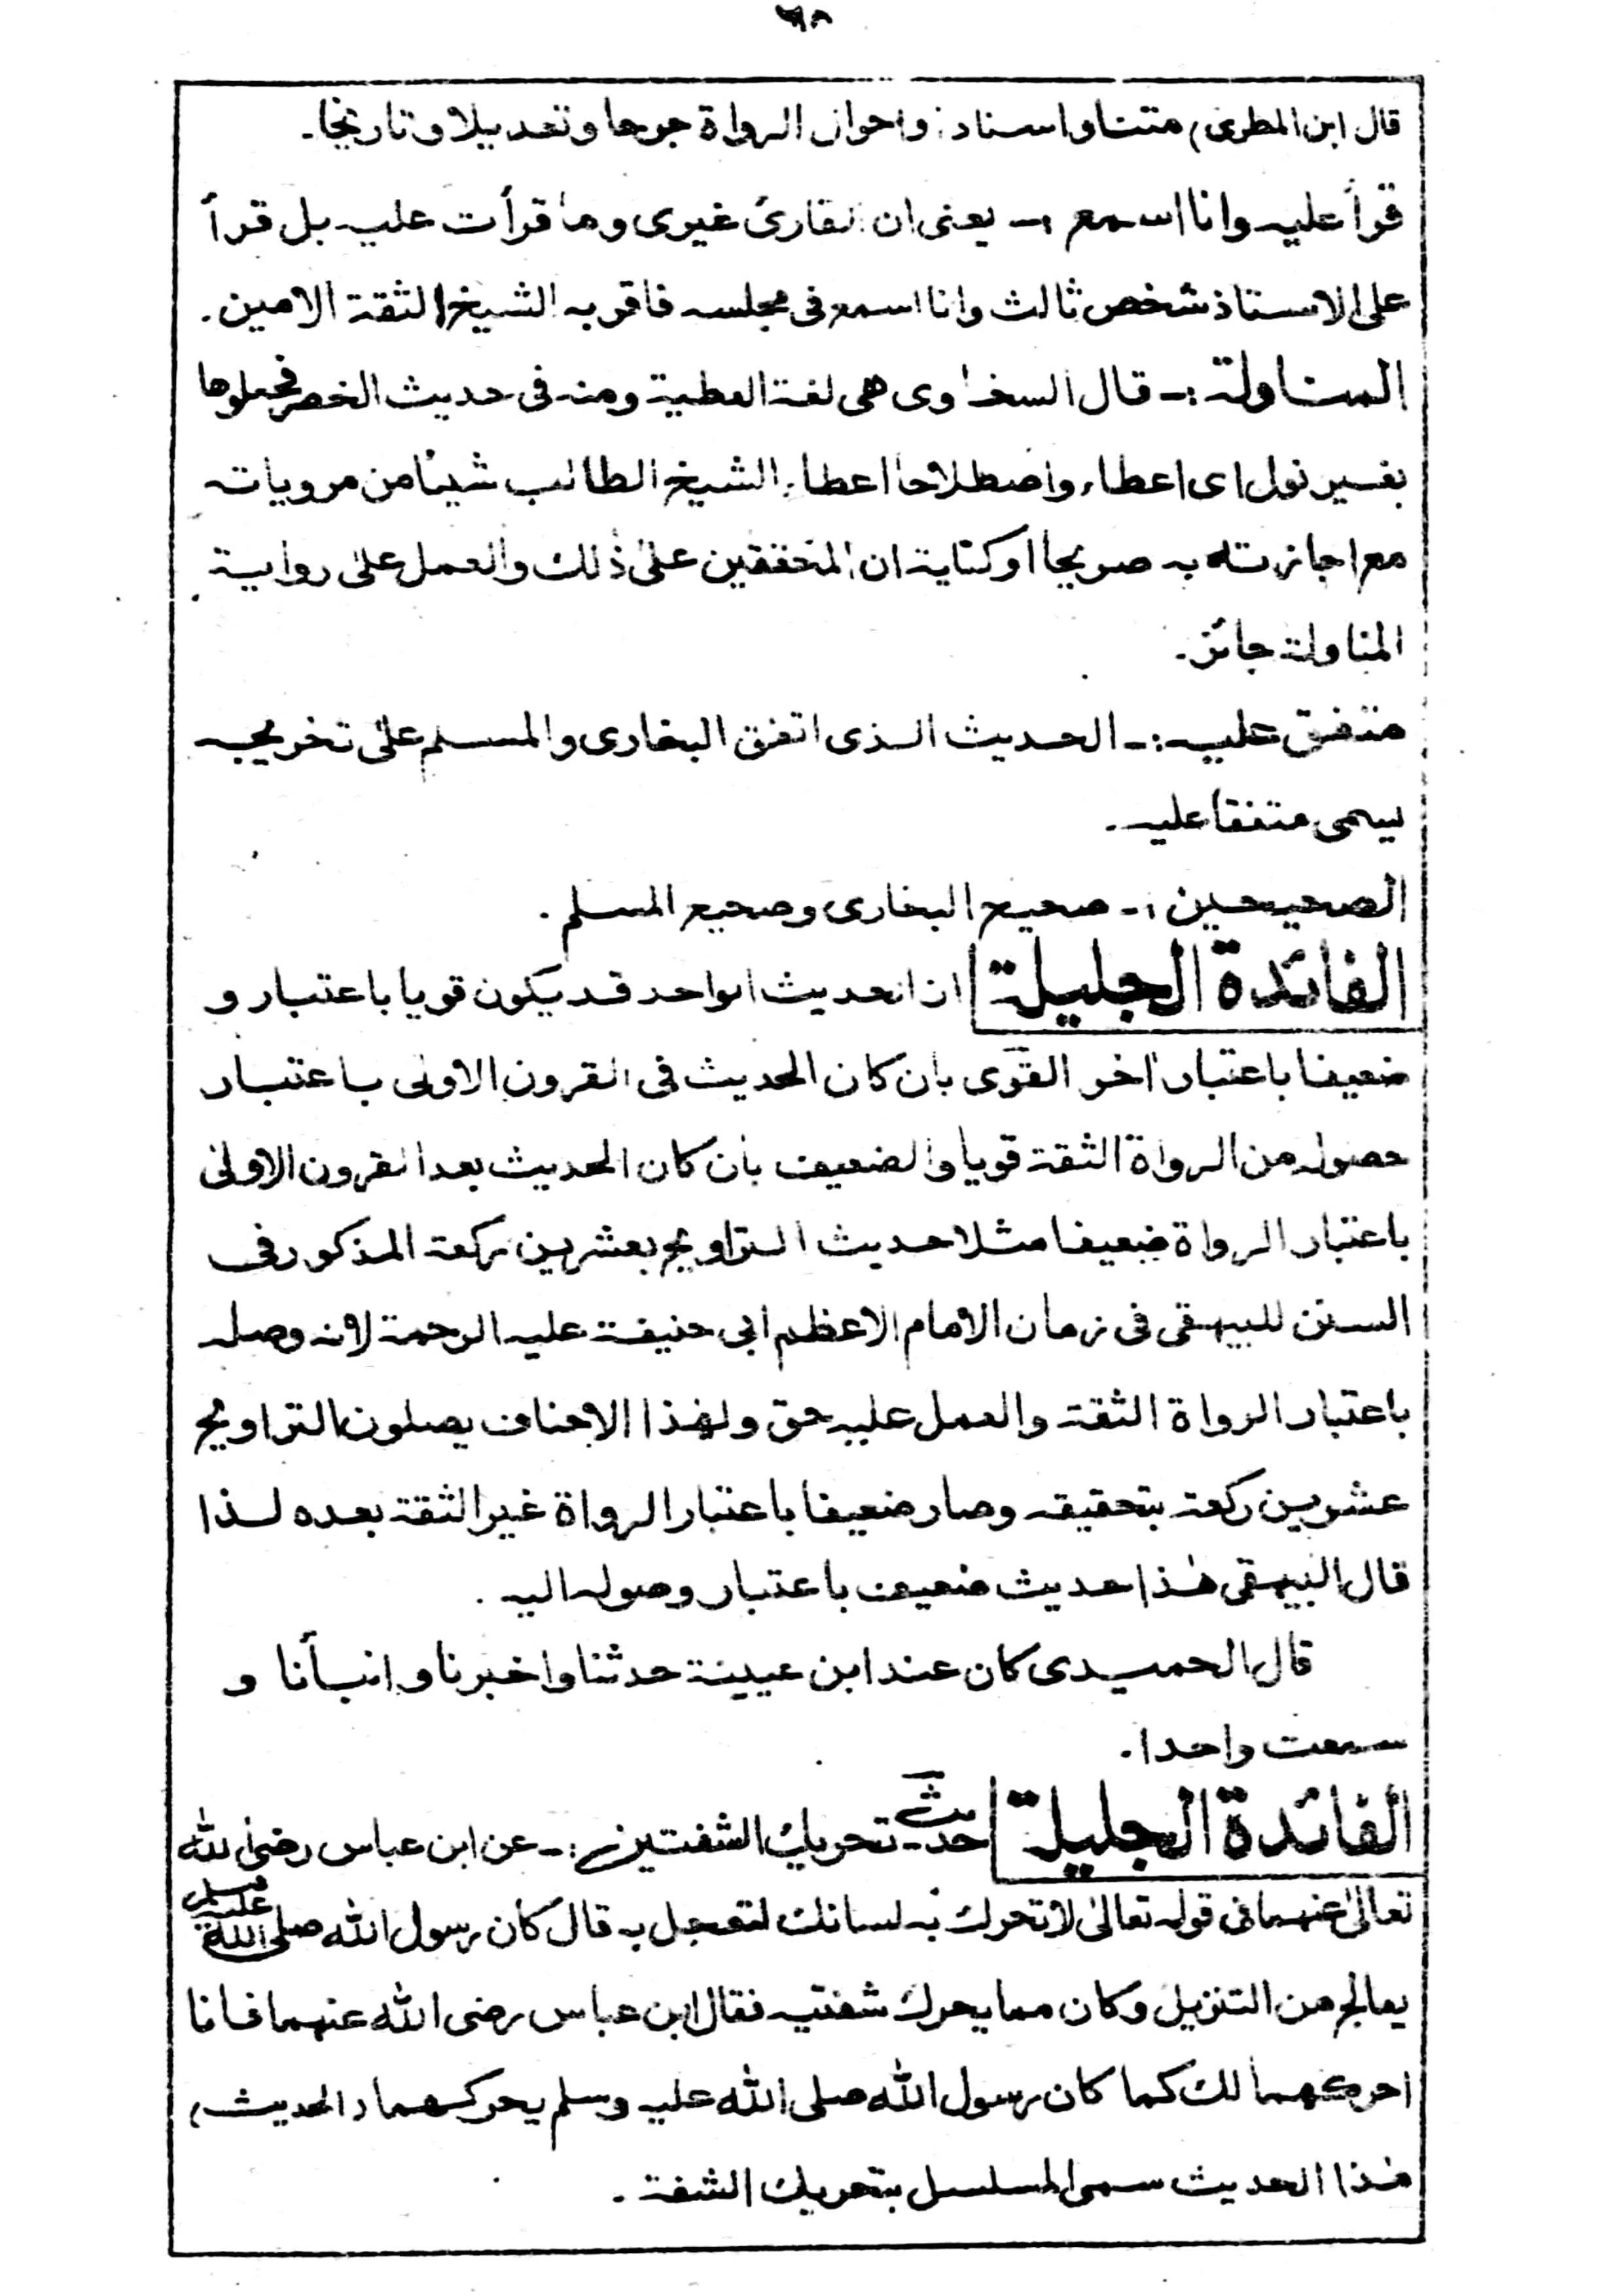 ٦٨
قال ابن المطرى) متنا واسنادا واحوال الرواة جرحا وتعديلا وتاريخا۔
قرأ عليه وانا اسمع :۔ يعنى ان القارئ غيرى وما قرأت عليه بل قرأ
على الاستاذ شخص ثالث وانا اسمع فى مجلسه فاقر به الشيخ الثقة الامين۔
المناولة :۔ قال السخاوى هى لغة العطية ومنه فى حديث الخضر فحملوها
بغير نول اى اعطاء واصطلاحا اعطاء الشيخ الطالب شيئا من مروياته
مع اجازته له به صريحا او كناية ان المحققين على ذلك والعمل على رواية
المناولة جائز۔
متفق عليه :۔ الحديث الذى اتفق البخارى والمسلم على تخريجه
يسمى متفقا عليه۔
الصحيحين :۔ صحيح البخارى وصحيح المسلم۔
الفائدة الجليلة ان الحديث الواحد قد يكون قويا باعتبار و
ضعيفا باعتبار اخر القوى بان كان الحديث فى القرون الاولى باعتبار
حصوله من الرواة الثقة قويا والضعيف بان كان الحديث بعد القرون الاولى
باعتبار الرواة ضعيفا مثلا حديث التراويح بعشرين ركعة المذكور فى
السنن للبيهقى فى زمان الامام الاعظم ابى حنيفة عليه الرحمة لانه وصله
باعتبار الرواة الثقة والعمل عليه حق ولهذا الاحناف يصلون التراويح
عشرين ركعة بتحقيقه وصار ضعيفا باعتبار الرواة غير الثقة بعده لذا
قال البيهقى هٰذا حديث ضعيف باعتبار وصوله اليه۔
قال الحميدى كان عند ابن عيينة حدثنا واخبرنا وانبأنا و
سمعت واحدا۔
الفائدة الجليلة حديث تحريك الشفتين :۔ عن ابن عباس رضى الله
تعالىٰ عنهما فى قوله تعالىٰ لا تحرك به لسانك لتعجل به قال كان رسول الله صلى الله عليه وسلم
يعالج من التنزيل وكان مما يحرك شفتيه فقال ابن عباس رضى الله عنهما فانا
احركهما لك كما كان رسول الله صلى الله عليه وسلم يحركهما (الحديث)
هٰذا الحديث سمى المسلسل بتحريك الشفة۔